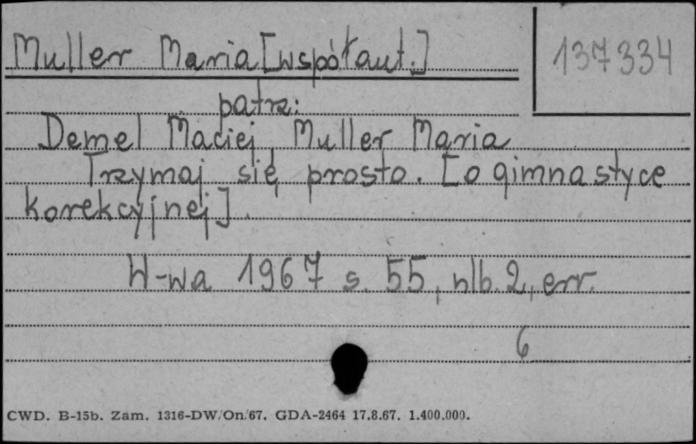 Muller Maria [współaut.]
137334
patrz:
Demel Maciej, Muller Maria
Trzymaj się prosto. [o gimnastyce
korekcyjnej].
W-wa 1967 s. 55, nlb. 2, err.
6
CWD. B-15b. Zam. 1316-DW/On/67. GDA-2464 17.8.67. 1.400.000.